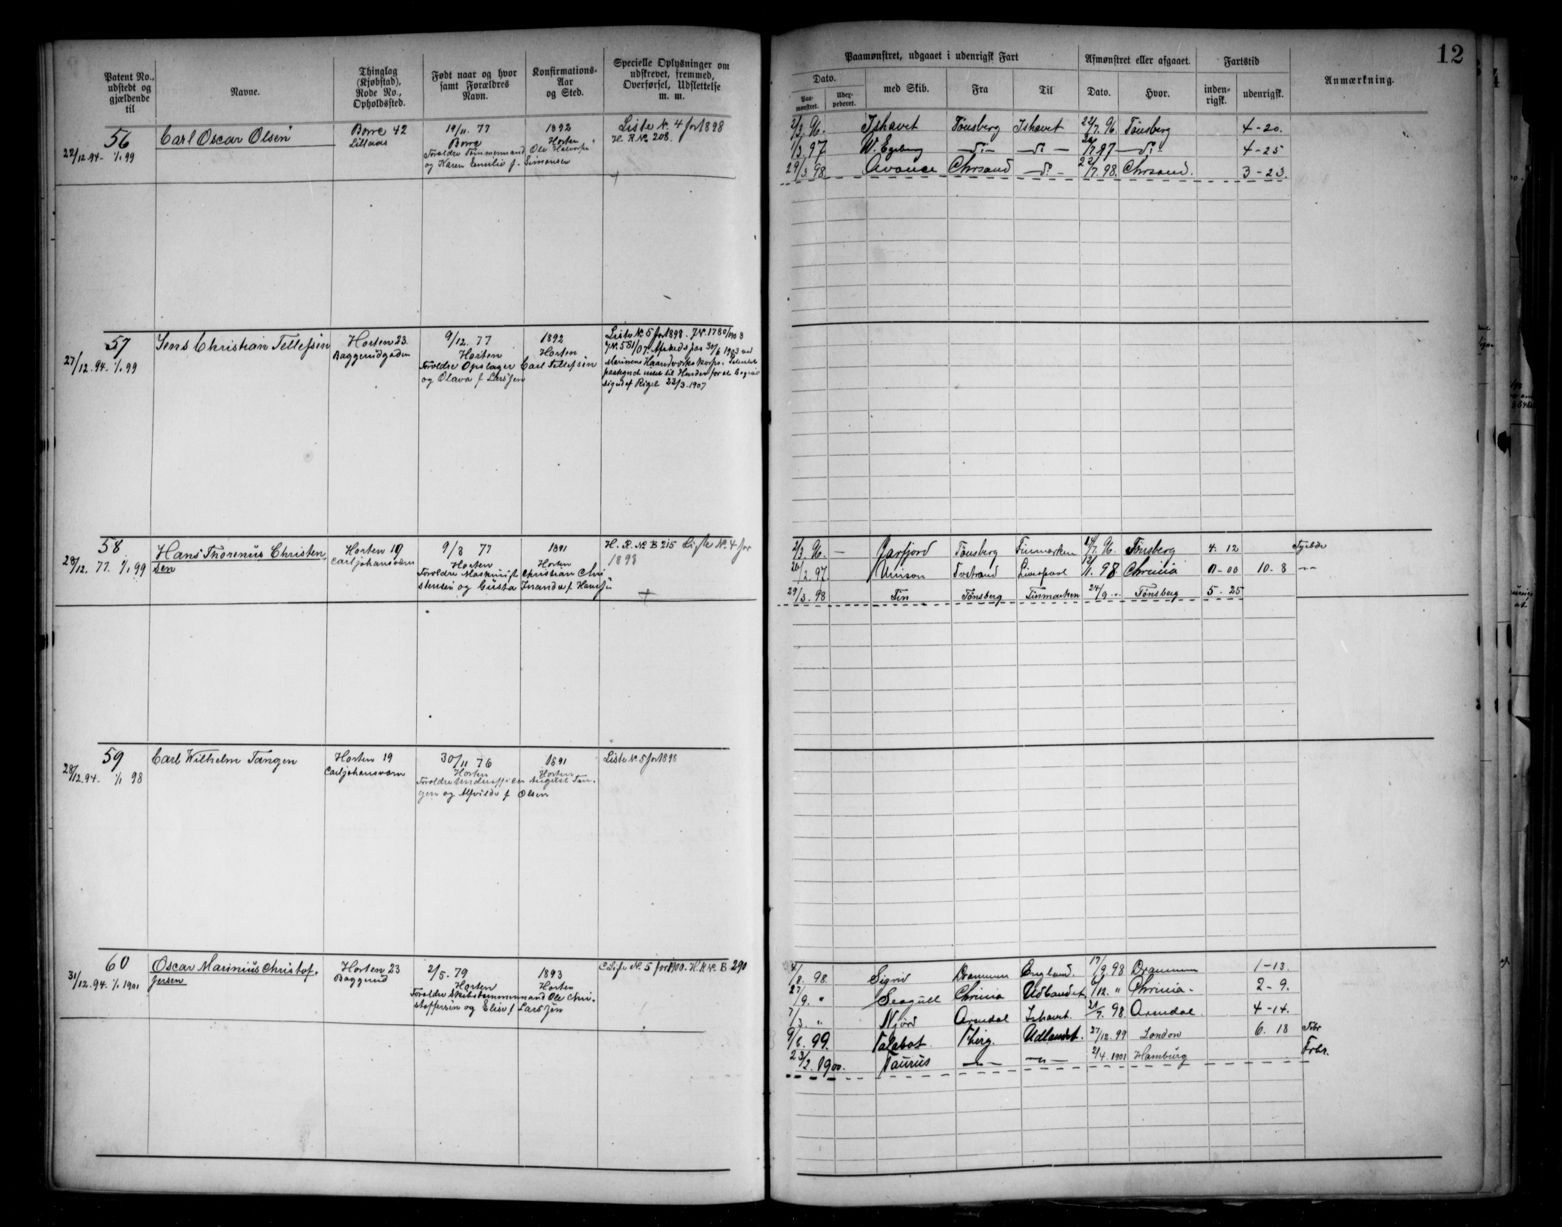 12
Patent No., udstedt og gjældende til
Navne.
Thinglag (Kjøbstad), Rode No., Opholdssted.
Født naar og hvor samt Forældres Navn.
Konfirmations-Aar og Sted.
Specielle Oplysninger om udskrevet, fremmed, Overførsel, Udslettelse m. m.
Paamønstret, udgaaet i udenrigsk Fart
Dato.
Paa-mønstret.
med Skib.
Fra
Til
Afmønstret eller afgaaet.
Dato.
Hvor.
Fartstid
inden-rigsk.
udenrigsk.
Anmærkning.
56
22/12.94. 1/1 99
Carl Oscar Olsen
Borre 42
19/11. 77
Borre
Forældre Tømmermand
og Karen Emilie f. Simonsen
1892
Horten
Liste No. 4 for 1898
H. R. No. 208.
2/3 96. Ishavet Tønsberg Ishavet 22/7. 96. Tønsberg 4-20.
1/3 97 W. Egeberg 97 4-25
29/3 98 Avance Chrsand 98. Chrsand. 3-23.
57
27/12.94. 1/1 99
Jens Christian Tellefsen
Horten 23
Baggerudgaden
9/12. 77
Horten
Forældre Opslager Carl Tellefsen
og Olava f. Larssen
1892
Horten
Liste No. 5 for 1898.
Marinens Haandværkskorps.
Rigel 22/3-1907
58
29/12. 77. 1/1 99
Hans Thorenius Christen-
sen
Horten 19
Carljohansværn
9/8 77
Horten
Forældre Maskinist Christian Chri-
stensen og Gusta Amanda f. Hansen
1891
Horten
H. R. No. B 215 Liste No. 4 for
1898
2/3 96. - Jarfjord Tønsberg Finmarken 96. Tønsberg 4. 12
2. 97 Unison Tvestrand Liverpool 98 Chrinia 0-00 10-8
29/3. 98 Fin Tønsberg Finmarken 24/9 Tønsberg 5-25
59
28/12.94. 1/1 98
Carl Wilhelm Tangen
Horten 19
Carljohansværn
30/11 76
Horten
Forældre Underofficer August Tan-
gen og Alvilde f. Olsen
1891
Horten
Liste No. 5 for 1898
60
31/12.94. 1/1 1901
Oscar Marinius Christof-
fersen
Horten 23
Baggerud
2/5. 79
Horten
Forældre Skibstømmermand Ole Chri-
stoffersen og Elise f. Larssen
1893
Horten
Liste No. 5 for 1900. H. R. No. B 290
98. Sigrid Drammen England. 17/9 98 Drammen 1-13.
Seagull Chrinia Udlandet /12. " Chrinia. 2-9.
Njord Arendal Ishavet. 98. Arendal 4-14.
9/6. 99. Talabot Tbirg. Udlandet. 27/12. 99 London 6. 18
23/2. 1900. Taurus 2/4. 1901 Hamburg Frbr.